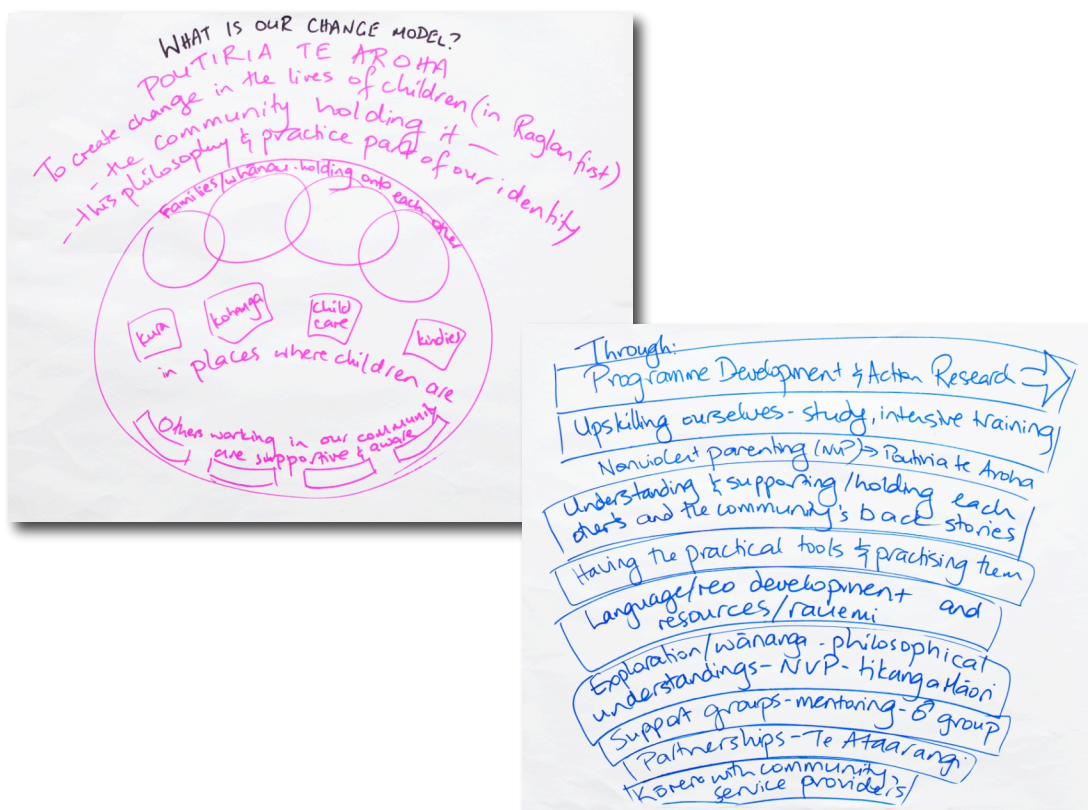 WHAT IS OUR CHANGE MODEL?
POUTIRIA TE AROHA
To create change in the lives of children (in Raglan first)
- the community holding it —
- this philosophy & practice part of our identity
Families/whānau - holding onto each other
kura
kohanga
child
care
kindies
in places where children are
Others working in our community
are supportive & aware
Through:
Programme Development & Action Research
Upskilling ourselves - study, intensive training
Nonviolent parenting (NVP) → Poutiria te Aroha
Understanding & supporting/holding each
others and the community's back stories
Having the practical tools & practising them
Language/reo development and
resources/rauemi
Exploration/wānanga - philosophical
understandings - NVP - tikanga Māori
Support groups - mentoring - ♂ group
Partnerships - Te Ataarangi
Kōrero with community
service providers